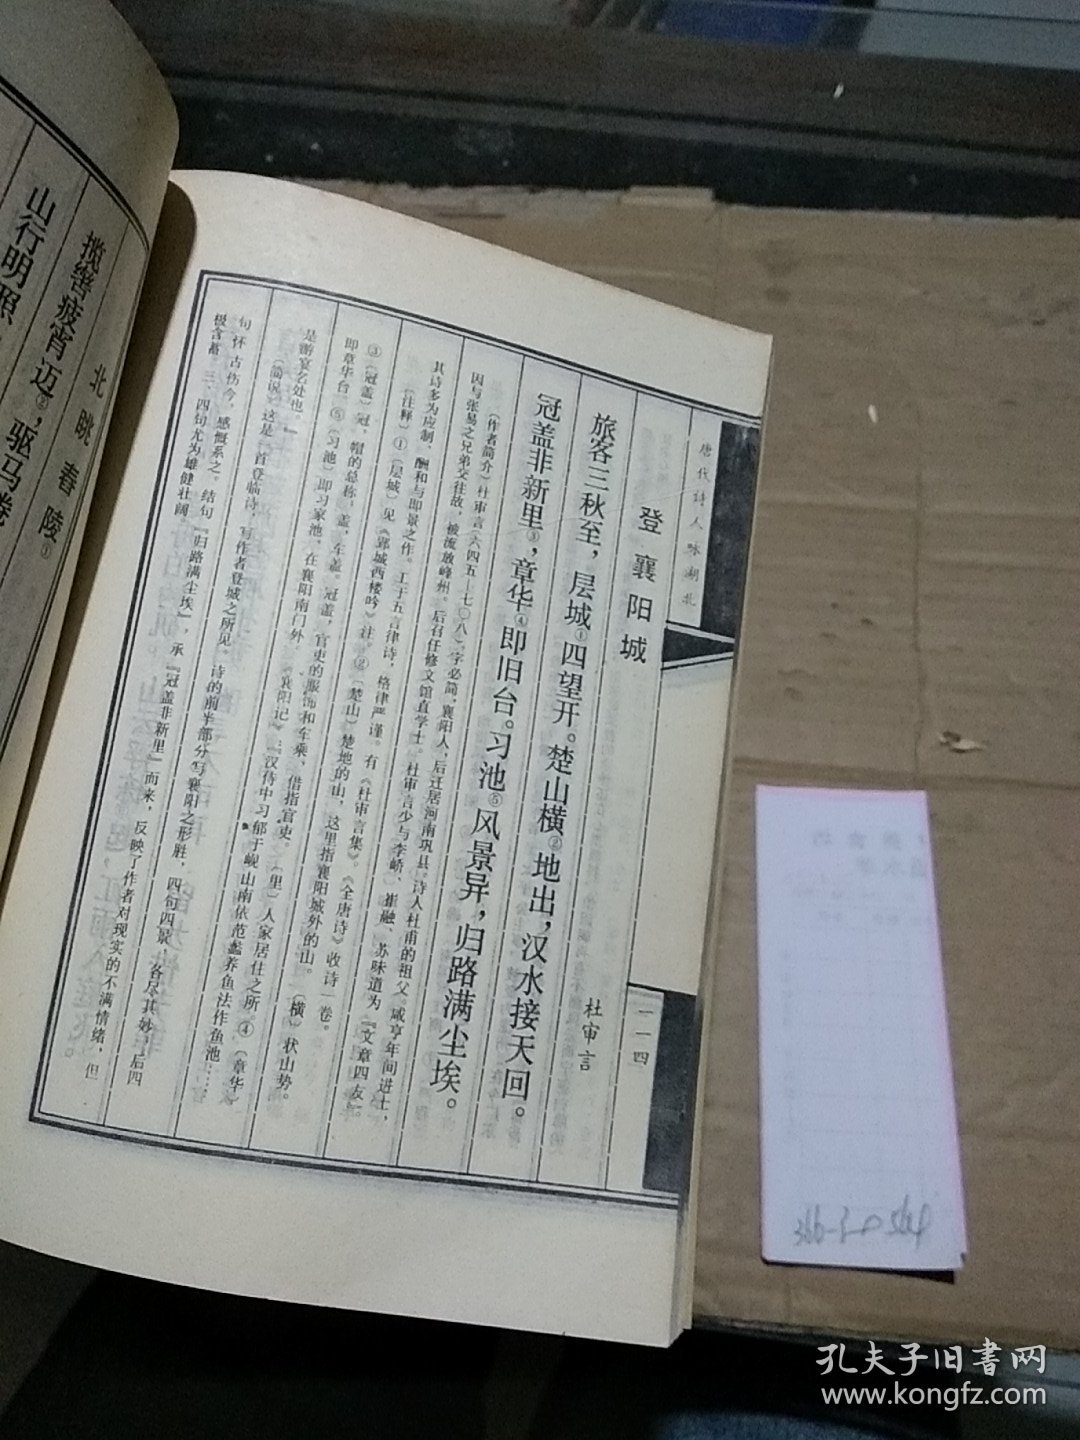 唐代诗人咏湖北
一一四
登襄阳城
杜审言
旅客三秋至，层城①四望开。楚山横②地出，汉水接天回。
冠盖非新里③，章华④即旧台。习池⑤风景异，归路满尘埃。
〔作者简介〕杜审言（六四五—七〇八），字必简，襄阳人，后迁居河南巩县。诗人杜甫的祖父。咸亨年间进士，
因与张易之兄弟交往故，被流放峰州。后召任修文馆直学士。杜审言少与李峤、崔融、苏味道为『文章四友』。
其诗多为应制、酬和与即景之作。工于五言律诗，格律严谨。有《杜审言集》。《全唐诗》收诗一卷。
〔注释〕①〔层城〕见《郢城西楼吟》注。②〔楚山〕楚地的山，这里指襄阳城外的山。〔横〕状山势。
③〔冠盖〕冠，帽的总称，盖，车盖。冠盖，官吏的服饰和车乘，借指官吏。〔里〕人家居住之所。④〔章华〕
即章华台。⑤〔习池〕即习家池，在襄阳南门外。《襄阳记》：『汉侍中习郁于岘山南依范蠡养鱼法作鱼池……
是游宴名处也。』
〔简说〕这是一首登临诗，写作者登城之所见。诗的前半部分写襄阳之形胜，四句四景，各尽其妙。后四
句怀古伤今，感慨系之。结句『归路满尘埃』，承『冠盖非新里』而来，反映了作者对现实的不满情绪，但
极含蓄。三、四句尤为雄健壮阔。
北眺春陵①
揽辔疲宵迈②，驱马倦
山行明照
366-3-0564
孔夫子旧书网
www.kongfz.com